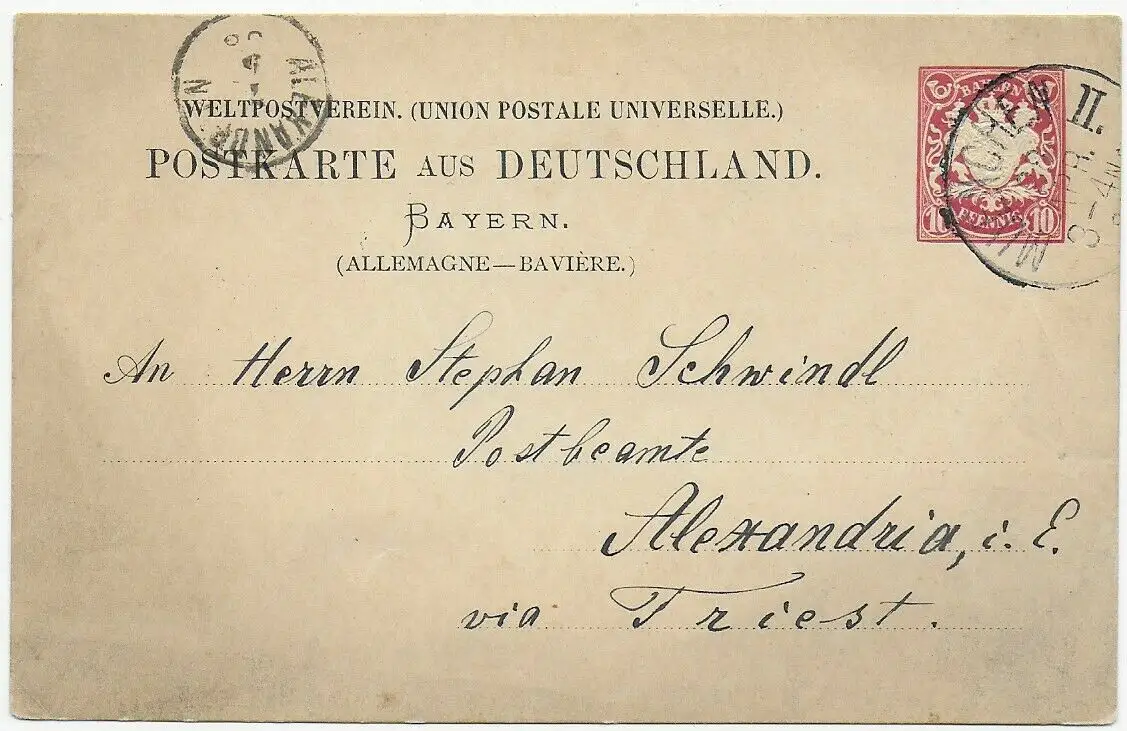 WELTPOSTVEREIN. (UNION POSTALE UNIVERSELLE.)
POSTKARTE AUS DEUTSCHLAND.
BAYERN.
(ALLEMAGNE—BAVIÈRE.)
BAYERN
10 PFENNIG 10
MÜNCHEN II.
APR.
3-4
An Herrn Stephan Schwindl
Postbeamte
Alexandria, i. E.
via Triest.